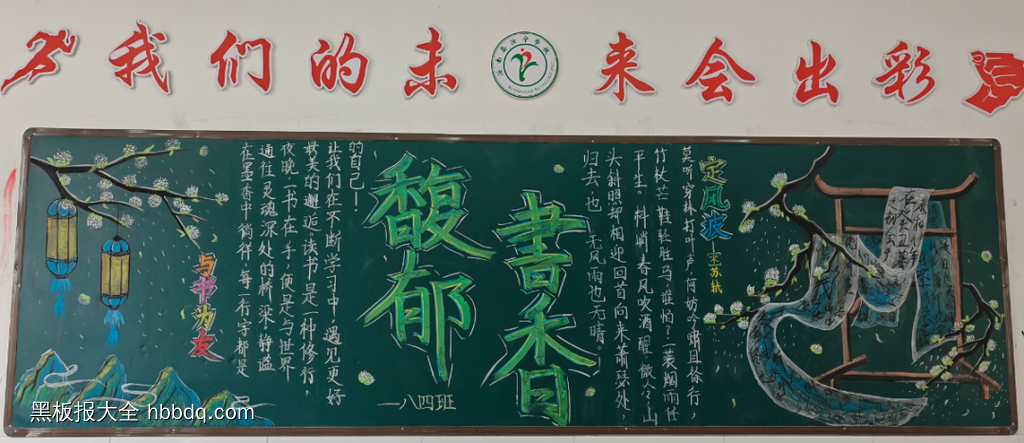 我们的未来会出彩
定风波
宋苏轼
莫听穿林打叶声,何妨吟啸且徐行,
竹杖芒鞋轻胜马,谁怕?一蓑烟雨任
平生。料峭春风吹酒醒,微冷,山
头斜照却相迎回首向来萧瑟处
归去 也无风雨也无晴
書香
馥郁
一八四班
与书为友
在墨香中徜徉,每一行字都是
通往灵魂深处的桥梁。静谧
夜晚一书在手,便是与世界
最美的邂逅。读书是一种修行,
让我们在不断学习中,遇见更好
的自己!
黑板报大全 hbbdq.com